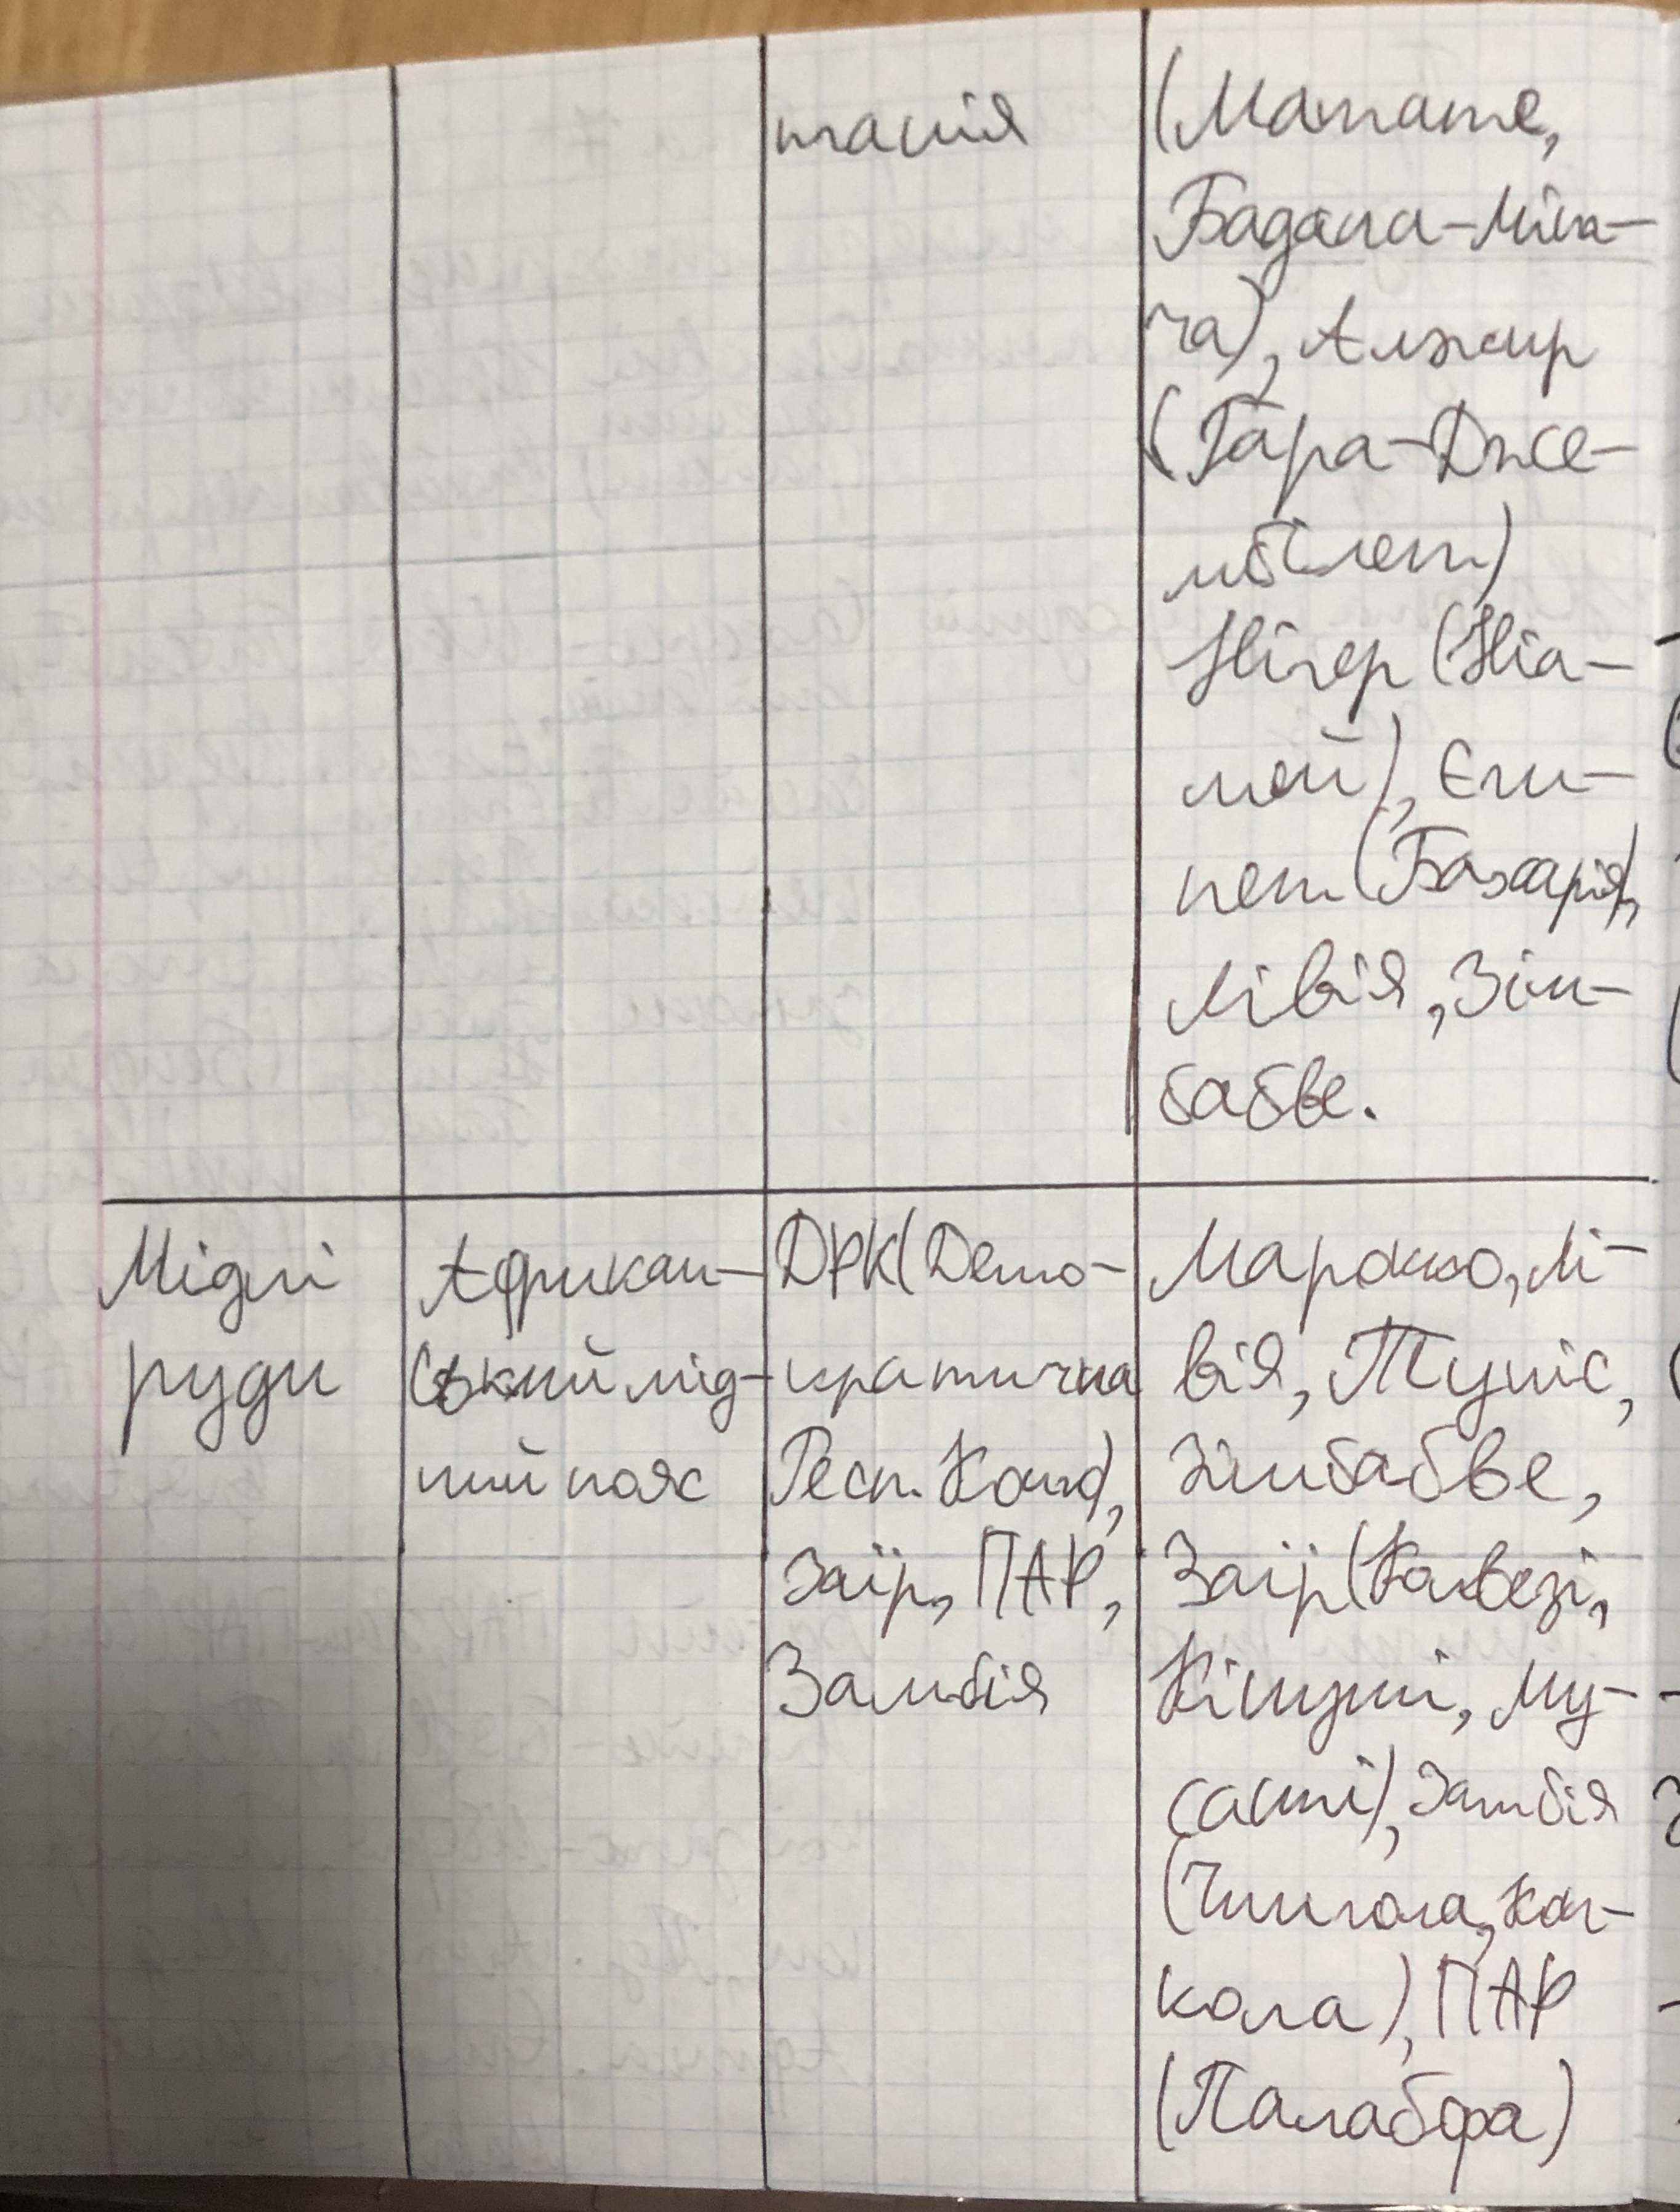 танія
(Матате,
Бадана-Міна-
ча), Алжир
(Гара-Дже-
мбілет)
Нігер (Ніа-
мей), Єги-
пет (Бахарія),
Лівія, Зім-
бабве.
Мідні
руди
Африкан-
ський мід-
ний пояс
ДРК(Демо-
кратична
Респ. Конго),
Заїр, ПАР,
Замбія
Марокко, Лі-
вія, Туніс,
Зімбабве,
Заїр(Колвезі,
Кінкуні, Му-
сасні), Замбія
(Чингола, Кон-
кола), ПАР
(Палабора)